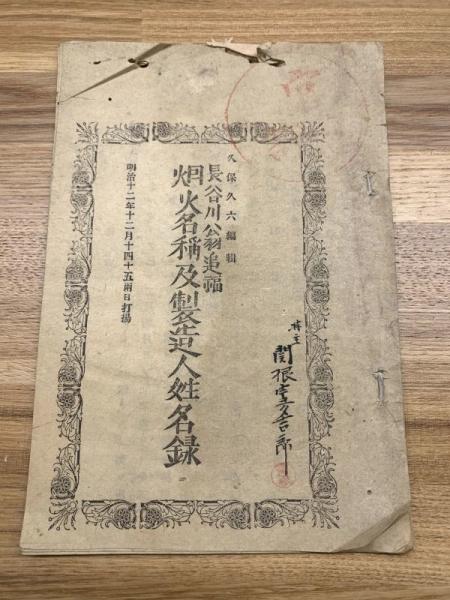 持主
関根
久保久六編輯
長谷川翁追福
烟火名稱及製造人姓名録
明治十二年十二月十四十五兩日打揚